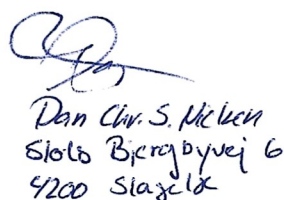 Dan Chr. S. Nielsen
Bjergbyvej 6
4200 Slagelse